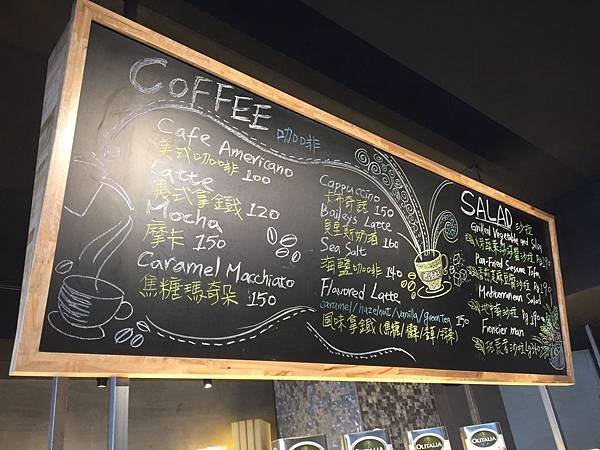 COFFEE 咖啡
Cafe Americano
美式咖啡 100
Latte
義式拿鐵 120
Mocha
摩卡 150
Caramel Macchiato
焦糖瑪奇朵 150
Cappuccino
卡布奇諾 150
Baileys Latte
貝里斯奶酒 160
Sea Salt
海鹽咖啡 140
Flavored Latte
caramel/hazelnut/vanilla/greentea 150
風味拿鐵
SALAD 沙拉
Grilled Vegetable and Salay
Pan-Fried Sesame Tofu
Mediterranean Salad
地中海沙拉
OLITALIA
OLITALIA
OLITALIA
OLITALIA